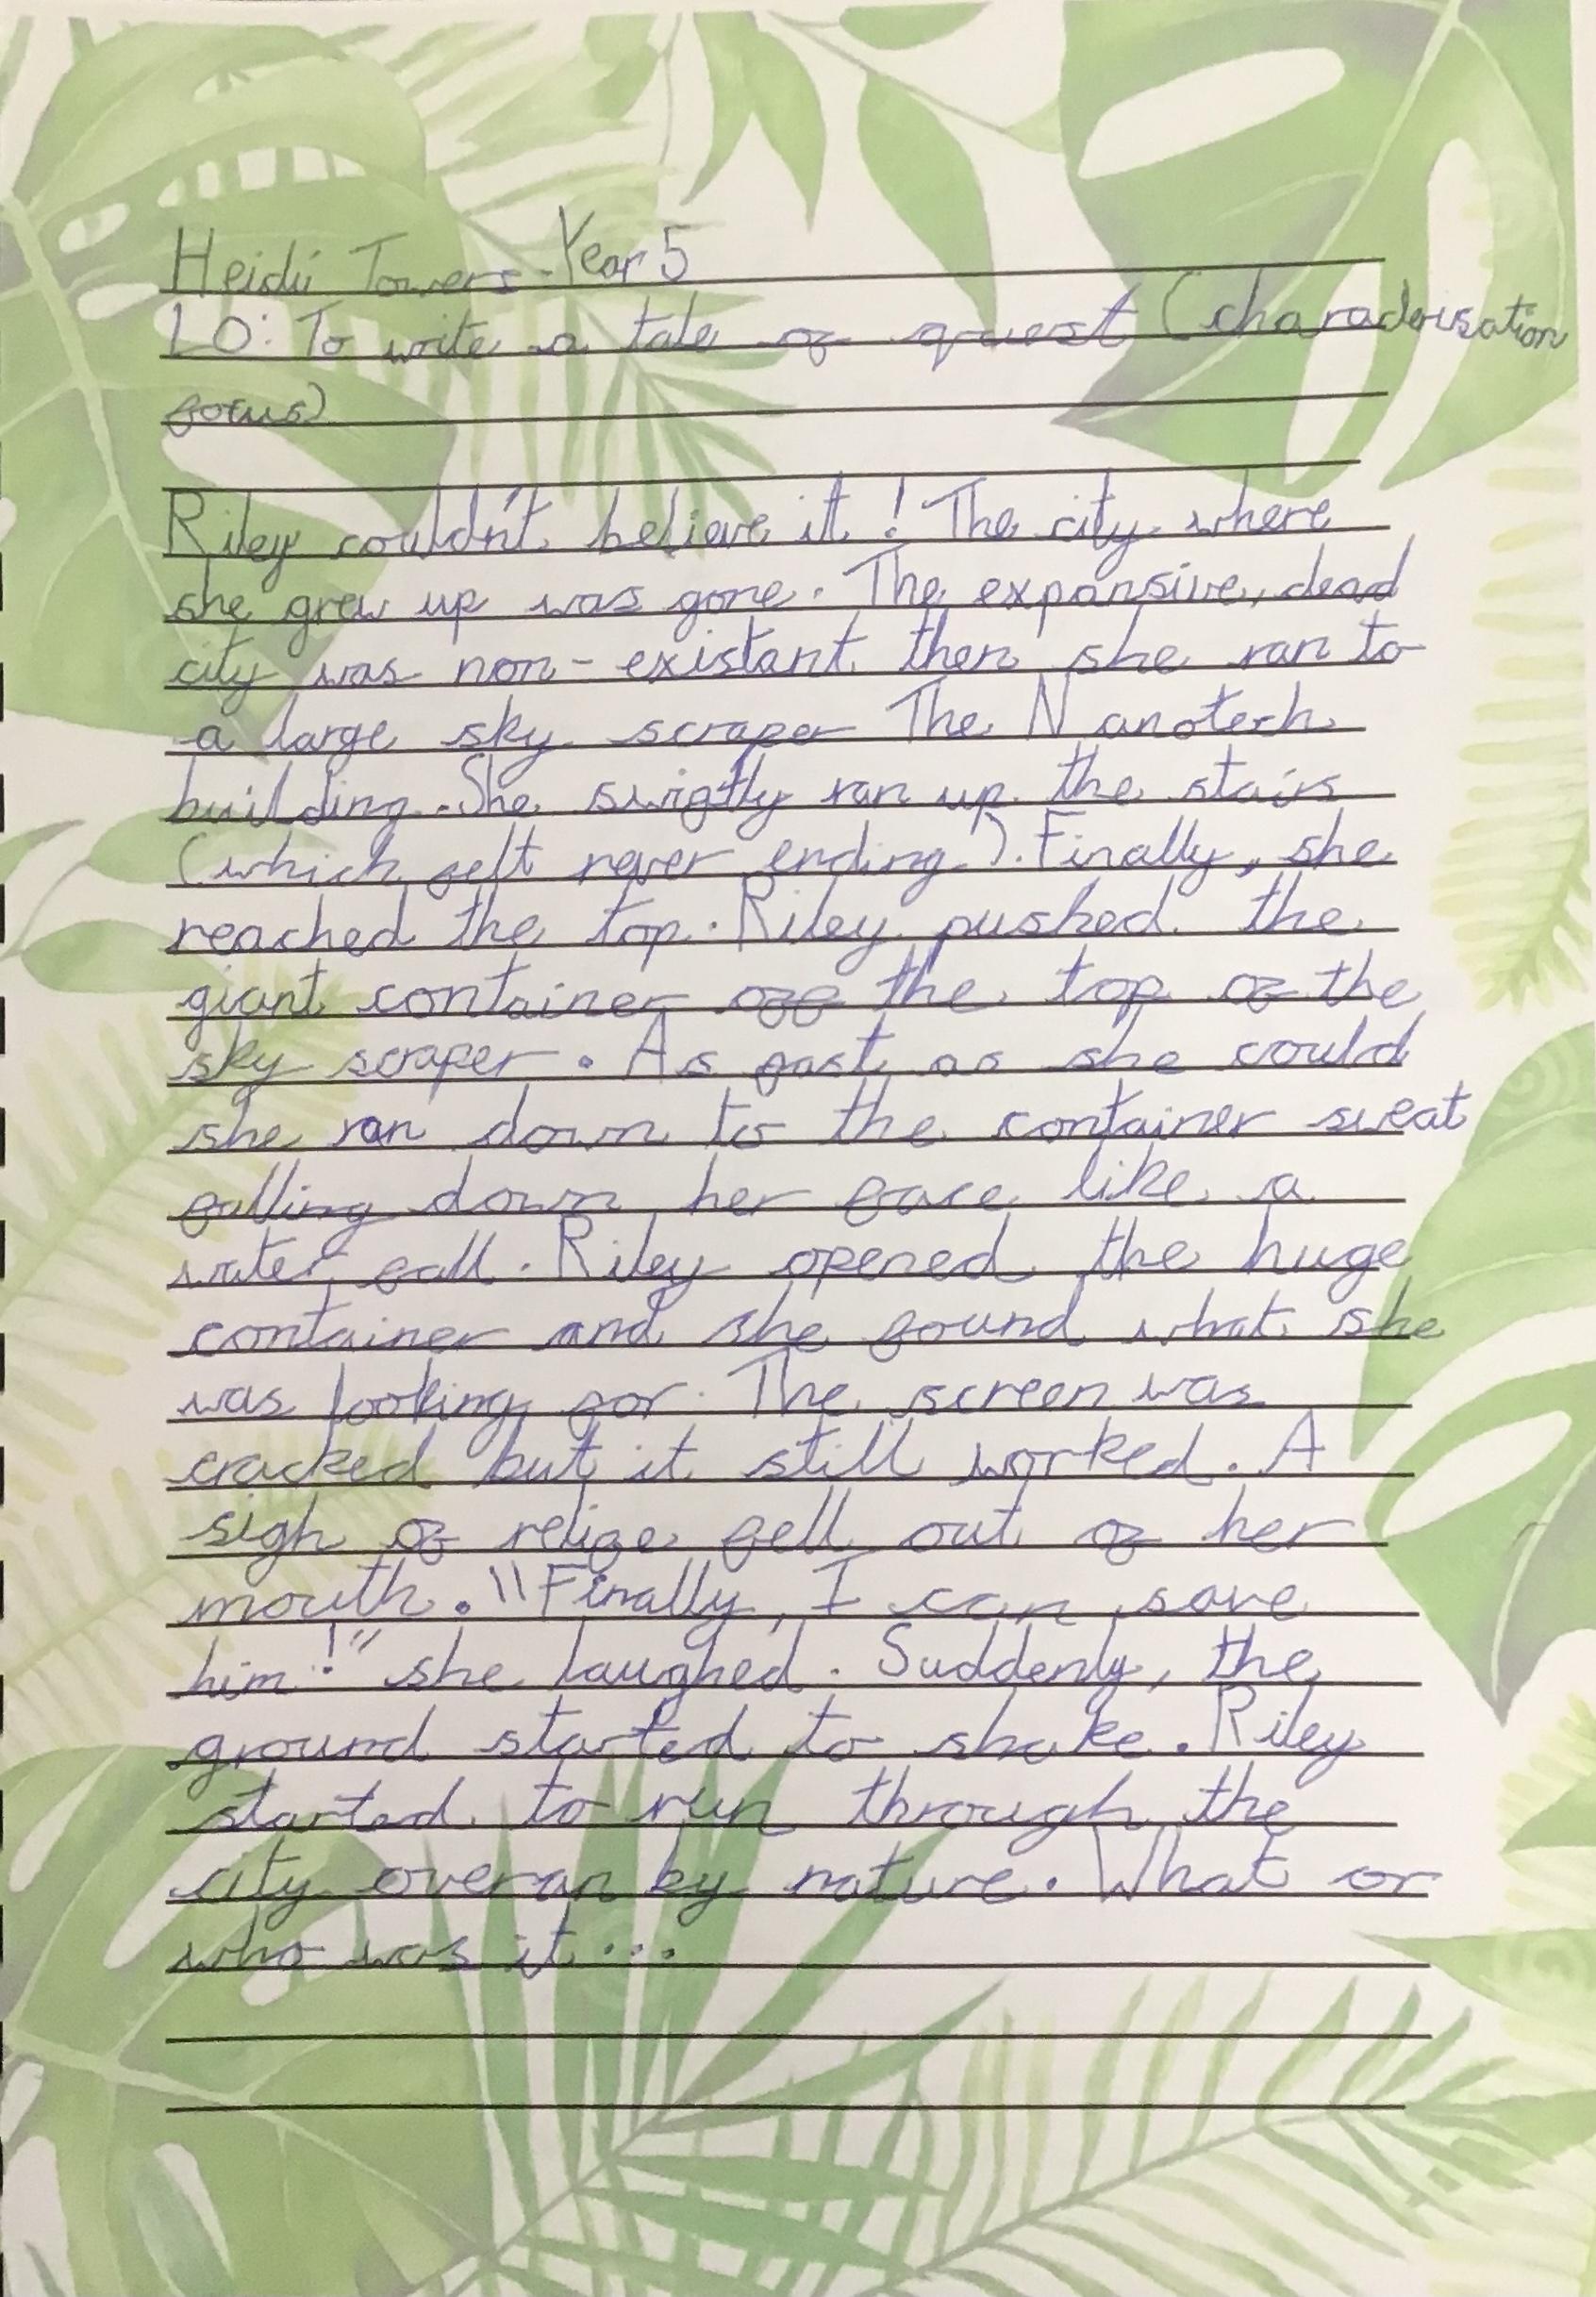 Heidi Towers - Year 5
LO: To write a tale of quest (characterisation
focus)
Riley couldn't believe it! The city where
she grew up was gone. The expansive, dead
city was non-existant then she ran to
a large sky scraper The Nanotech
building. She swiftly ran up the stairs
(which felt never ending). Finally, she
reached the top. Riley pushed the
giant container off the top of the
sky scraper. As fast as she could
she ran down to the container sweat
falling down her face like a
water fall. Riley opened the huge
container and she found what she
was looking for. The screen was
cracked but it still worked. A
sigh of relife fell out of her
mouth. "Finally, I can save
him!" she laughed. Suddenly, the
ground started to shake. Riley
started to run through the
city overan by nature. What or
who was it...